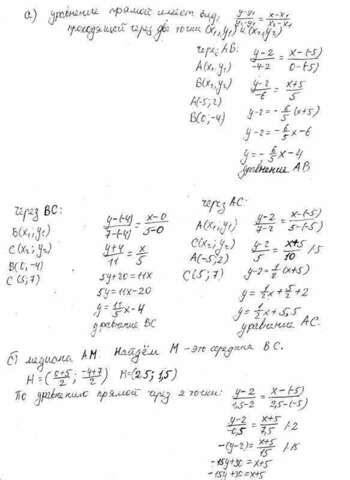 а) уравнение прямой имеет вид: (y-y₁)/(y₂-y₁) = (x-x₁)/(x₂-x₁)
проходящей через две точки (x₁,y₁) и (x₂,y₂)
через AB:
A(x₁,y₁)
B(x₂,y₂)
A(-5;2)
B(0;-4)
(y-2)/(-4-2) = (x-(-5))/(0-(-5))
(y-2)/(-6) = (x+5)/5
y-2=-6/5(x+5)
y-2=-6/5x-6
y=-6/5x-4
уравнение AB
через BC:
B(x₁,y₁)
C(x₂;y₂)
B(0;-4)
C(5;7)
(y-(-4))/(7-(-4)) = (x-0)/(5-0)
(y+4)/11 = x/5
5y+20=11x
5y=11x-20
y=11/5x-4
уравнение BC
через AC:
A(x₁,y₁)
C(x₂;y₂)
A(-5;2)
C(5;7)
(y-2)/(7-2) = (x-(-5))/(5-(-5))
(y-2)/5 = (x+5)/10 /·5
y-2=1/2(x+5)
y=1/2x+5/2+2
y=1/2x+5,5
уравнение AC.
б) медиана AM. Найдём M - это середина BC.
M=((5+5)/2; (-4+7)/2) M=(2,5; 1,5)
По уравнению прямой через 2 точки:
(y-2)/(1,5-2) = (x-(-5))/(2,5-(-5))
(y-2)/(-0,5) = (x+5)/7,5 /:2
-(y-2)=(x+5)/15 /·15
-15y+30=x+5
-15y+30=x+5